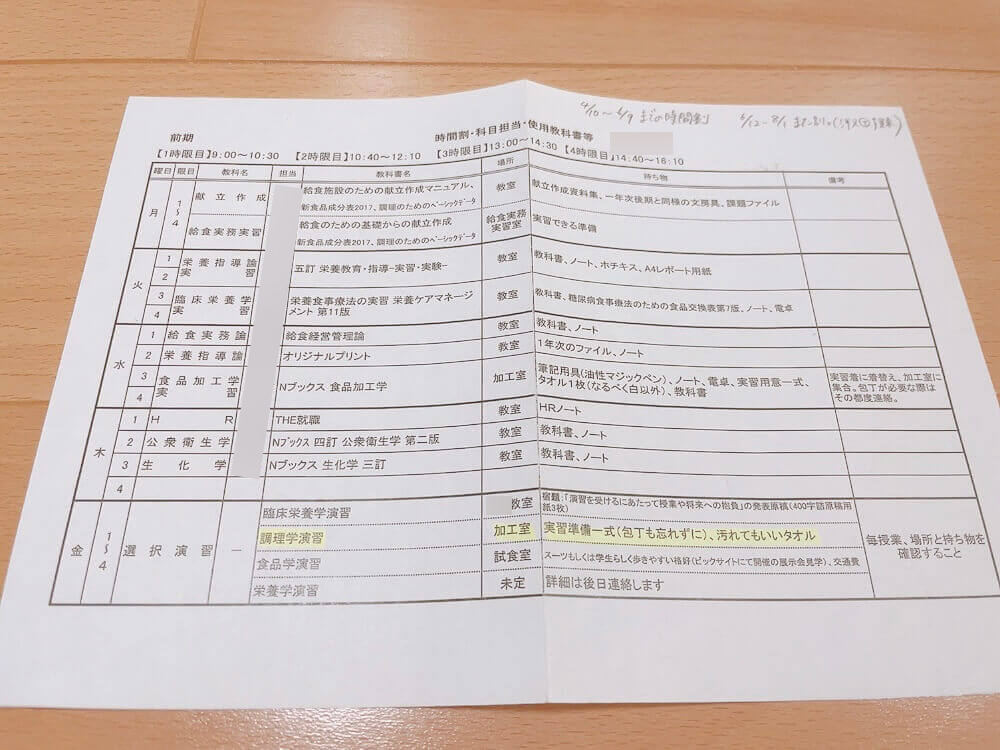 4/10～6/9 までの時間割
6/12～8/1
前期
時間割・科目担当・使用教科書等
【1時限目】9:00～10:30 【2時限目】10:40～12:10 【3時限目】13:00～14:30 【4時限目】14:40～16:10
曜日 限目 教科名 担当 教科書名 場所 持ち物 備考
月 1～4 献立作成 給食施設のための献立作成マニュアル、 教室 献立作成資料集、一年次後期と同様の文房具、課題ファイル
新食品成分表2017、調理のためのベーシックデータ
給食実務実習 給食のための基礎からの献立作成 給食実務実習室 実習できる準備
新食品成分表2017、調理のためのベーシックデータ
火 1 2 栄養指導論実習 五訂 栄養教育・指導-実習・実験- 教室 教科書、ノート、ホチキス、A4レポート用紙
3 4 臨床栄養学実習 栄養食事療法の実習 栄養ケアマネージメント 第11版 教室 教科書、糖尿病食事療法のための食品交換表第7版、ノート、電卓
水 1 給食実務論 給食経営管理論 教室 教科書、ノート
2 栄養指導論 オリジナルプリント 教室 1年次のファイル、ノート
3 4 食品加工学実習 Nブックス 食品加工学 加工室 筆記用具(油性マジックペン)、ノート、電卓、実習用意一式、タオル1枚(なるべく白以外)、教科書 実習着に着替え、加工室に集合。包丁が必要な際はその都度連絡。
木 1 HR THE就職 教室 HRノート
2 公衆衛生学 Nブックス 四訂 公衆衛生学 第二版 教室 教科書、ノート
3 生化学 Nブックス 生化学 三訂 教室 教科書、ノート
4
金 1～4 選択演習 － 臨床栄養学演習 教室 宿題:「演習を受けるにあたって授業や将来への抱負」の発表原稿(400字詰原稿用紙3枚) 毎授業、場所と持ち物を確認すること
調理学演習 加工室 実習準備一式(包丁も忘れずに)、汚れてもいいタオル
食品学演習 試食室 スーツもしくは学生らしく歩きやすい格好(ビックサイトにて開催の展示会見学)、交通費
栄養学演習 未定 詳細は後日連絡します